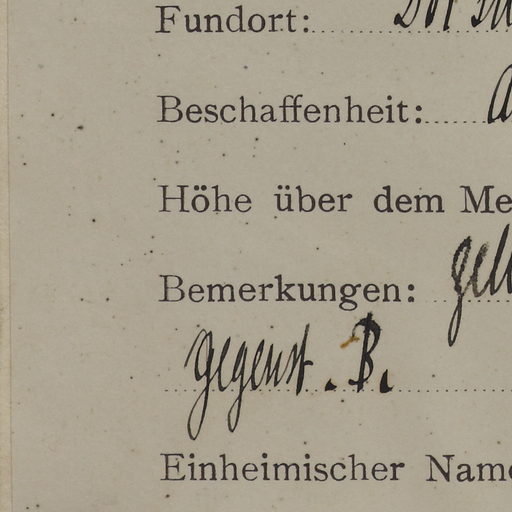 Fundort:
Beschaffenheit:
Höhe über dem Me
Bemerkungen: gel
gegenst. B.
Einheimischer Name